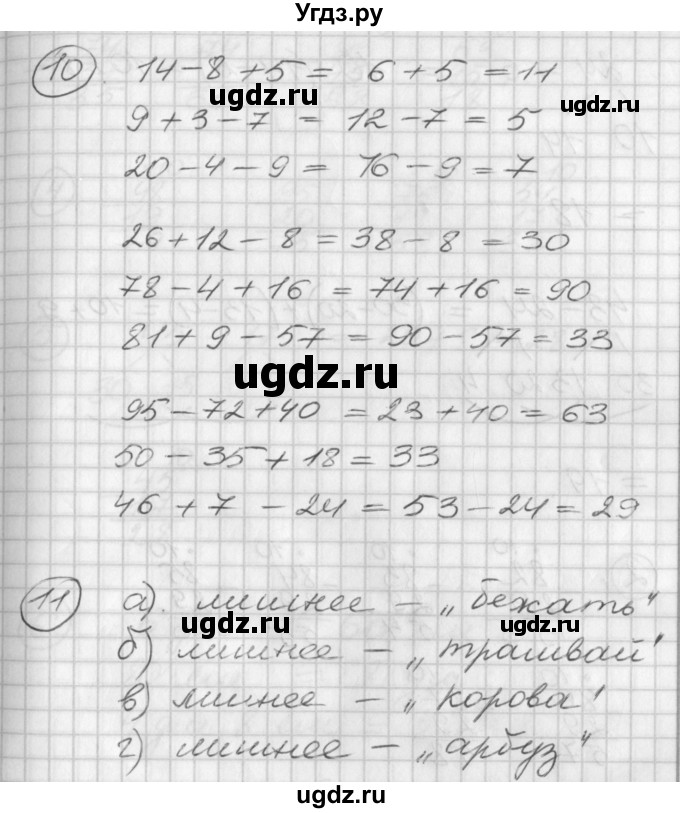 Угдз.ру
10. 14 - 8 + 5 = 6 + 5 = 11
ugdz.ru ugdz.ru
9 + 3 - 7 = 12 - 7 = 5
20 - 4 - 9 = 16 - 9 = 7
26 + 12 - 8 = 38 - 8 = 30
78 - 4 + 16 = 74 + 16 = 90
81 + 9 - 57 = 90 - 57 = 33
ugdz.ru
95 - 72 + 40 = 23 + 40 = 63
50 - 35 + 18 = 33
46 + 7 - 24 = 53 - 24 = 29
11 а). лишнее - „бежать"
ugdz.ru ugdz.ru
б) лишнее - „трамвай"
в) лишнее - „корова"
г) лишнее - „арбуз"
ugdz.ru